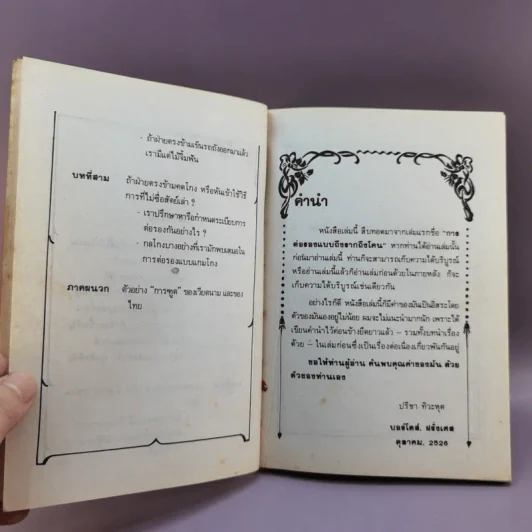 - ถ้าฝ่ายตรงข้ามเข็นรถถังออกมาแล้ว
เรามีแต่ไม้จิ้มฟัน
บทที่สาม ถ้าฝ่ายตรงข้ามคดโกง หรือหันเข้าใช้วิธี
การที่ไม่ซื่อสัตย์เล่า ?
- เราปรึกษาหารือกำหนดระเบียบการ
ต่อรองกันอย่างไร ?
- กลโกงบางอย่างที่เรามักพบเสมอใน
การต่อรองแบบแกมโกง
ภาคผนวก ตัวอย่าง "การฑูต" ของเวียดนาม และของ
ไทย
คำนำ
หนังสือเล่มนี้ สืบทอดมาจากเล่มแรกชื่อ "การ
ต่อรองแบบถึงรากถึงโคน" หากท่านได้อ่านเล่มนั้น
ก่อนมาอ่านเล่มนี้ ท่านก็จะสามารถเก็บความได้บริบูรณ์
หรืออ่านเล่มนี้แล้วก็อ่านเล่มก่อนด้วยในภายหลัง ก็จะ
เก็บความได้บริบูรณ์เช่นเดียวกัน
อย่างไรก็ดี หนังสือเล่มนี้ก็มีค่าของมันเป็นอิสระโดย
ตัวของมันเองอยู่ไม่น้อย ผมจะไม่แนะนำมากนัก เพราะได้
เขียนคำนำไว้ค่อนข้างยืดยาวแล้ว – รวมทั้งบทนำเรื่อง
ด้วย – ในเล่มก่อนซึ่งเป็นเรื่องต่อเนื่องเกี่ยวพันกันอยู่
ขอให้ท่านผู้อ่าน ค้นพบคุณค่าของมัน ด้วย
ตัวของท่านเอง
ปรีชา ทิวะหุต
บอร์โดส์. ฝรั่งเศส
ตุลาคม. 2526